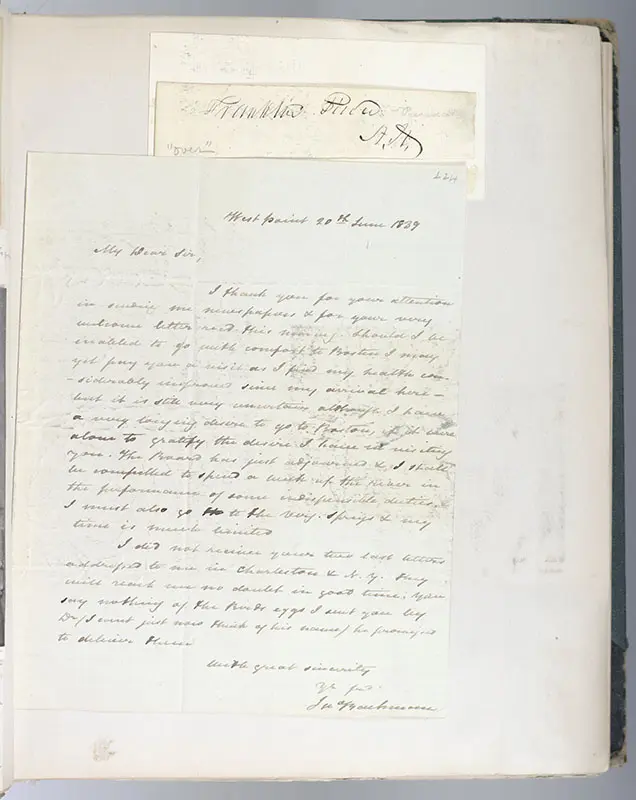 Franklin
N.H.
"over"
224
West Point 20th June 1839
My Dear Sir,
I thank you for your attention
in sending me newspapers & for your very
welcome letter recd this morning. Should I be
enabled to go with comfort to Boston I may
yet pay you a visit as I find my health con-
-siderably improved since my arrival here -
but it is still very uncertain although I have
a very longing desire to go to Boston, if it were
alone to gratify the desire I have in visiting
you. The Board has just adjourned & I shall
be compelled to spend a week up the River in
the performance of some indispensible duties.
I must also go to the Springs & my
time is much limited
I did not receive your two last letters
addressed to me in Charleston & N.Y. They
will reach me no doubt in good time. You
say nothing of the Birds eggs I sent you by
Dr (I cannot just now think of his name) he promised
to deliver them
With great sincerity
Yr
Jno Bachman